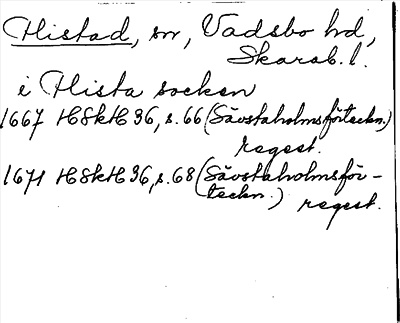 Histad, sn, Vadsbo hd,
Skarab. l.
i Hista socken
1667 HSkH 36, s. 66 (Sävstaholmsförteckn.)
regest.
1671 HSkH 36, s. 68 (Sävstaholmsför-
teckn.) regest.